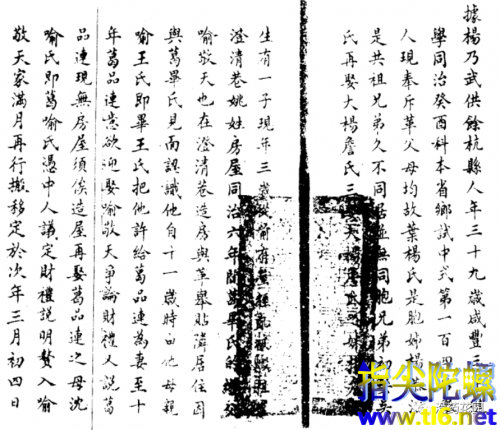 據楊乃武供餘杭縣人年三十九歲咸豐三
學同治癸酉科本省鄉試中式第一百四
人現奉斥革父母均故葉楊氏是胞姊楊
是共祖兄弟久不同居並無同胞兄弟初
氏再娶大楊詹氏三
生有一子現年三歲
澄清巷姚姓房屋同治六年間葛畢氏的
喻敬天也在澄清巷造房與革舉貼隣居住因
與葛畢氏見面認識他自十一歲時由他母親
喻王氏即畢王氏把他許給葛品連為妻至十
年葛品連意欲迎娶喻敬天爭論財禮人說葛
品連現無房屋須俟造屋再娶葛品連之母沈
喻氏即葛喻氏憑中人議定財禮說明贅入喻
敬天家滿月再行搬移定於次年三月初四日
指尖陀螺
www.tl6.net